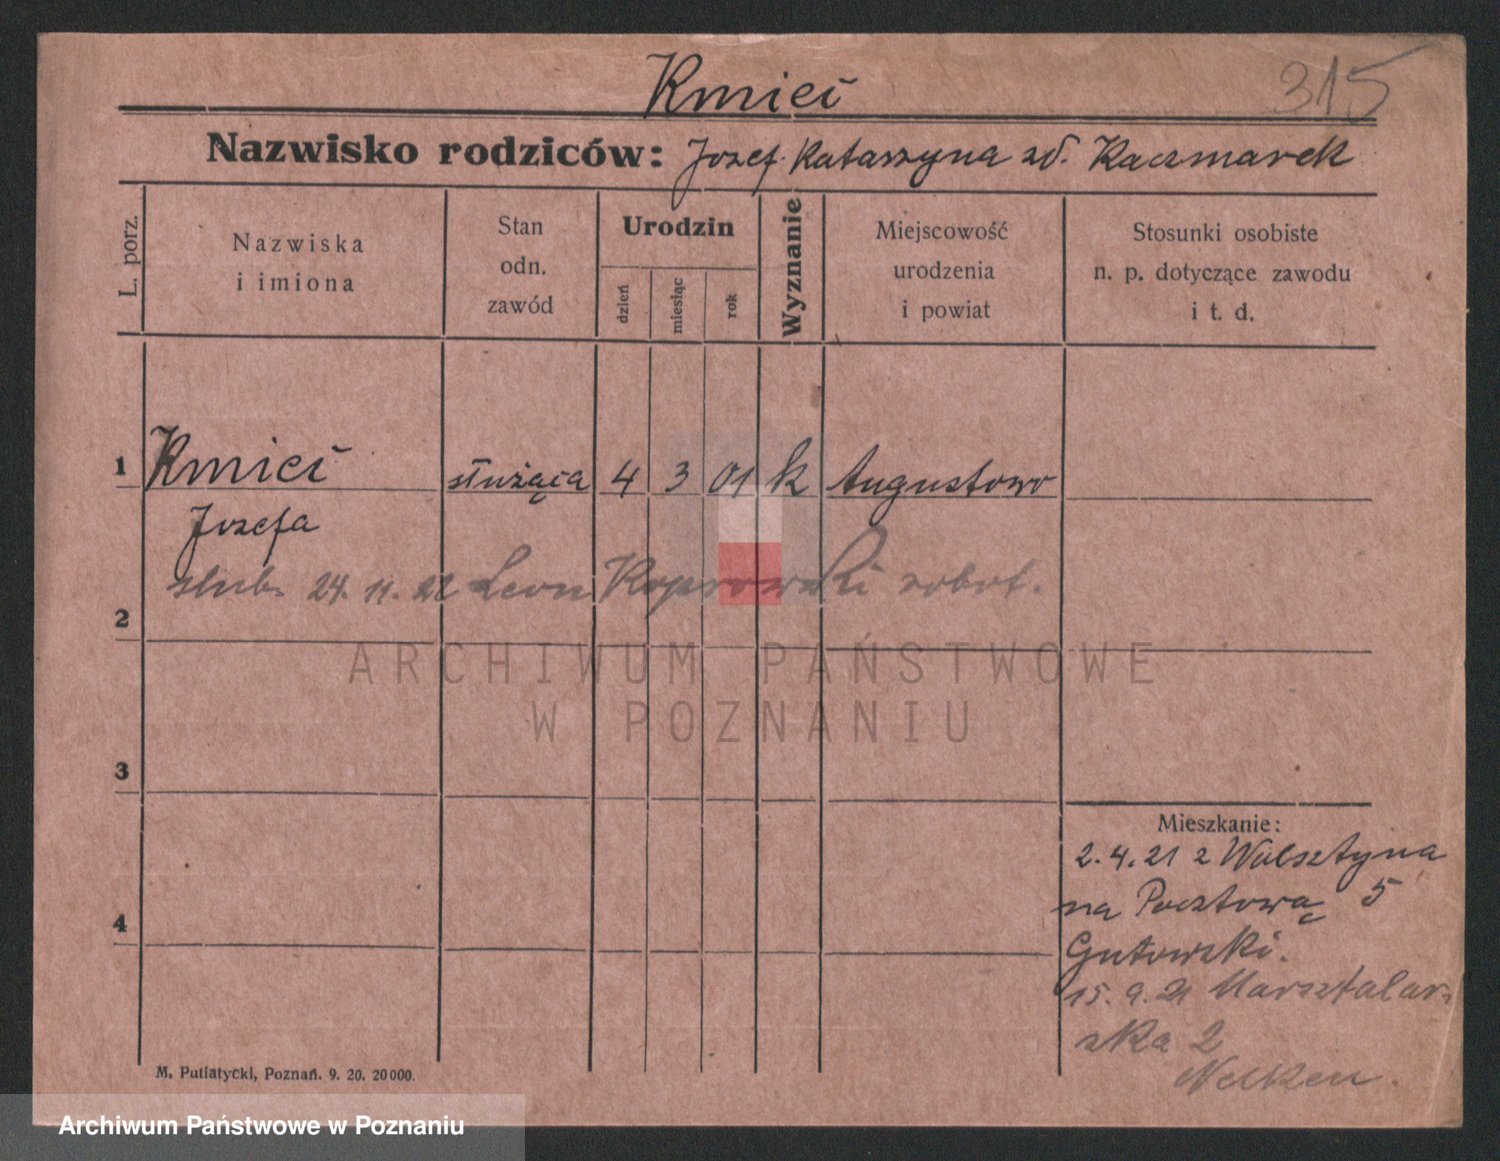 Kmieć
315
Nazwisko rodziców: Jozef Katarzyna zd. Kaczmarek
L. porz.
Nazwiska
i imiona
Stan
odn.
zawód
Urodzin
dzień
miesiąc
rok
Wyznanie
Miejscowość
urodzenia
i powiat
Stosunki osobiste
n. p. dotyczące zawodu
i t. d.
1 Kmieć służąca 4 3 01 k Augustowo
Jozefa
slub. 24. 11. 22 Leon Koprowski robot.
2
ARCHIWUM PAŃSTWOWE
W POZNANIU
3
Mieszkanie:
2.4.21 z Wolsztyna
na Pocztową 5
4
Gutowski.
15. 9. 21 Marsztalar-
ska 2
Nelken.
M. Putiatycki, Poznań. 9. 20. 20000.
Archiwum Państwowe w Poznaniu